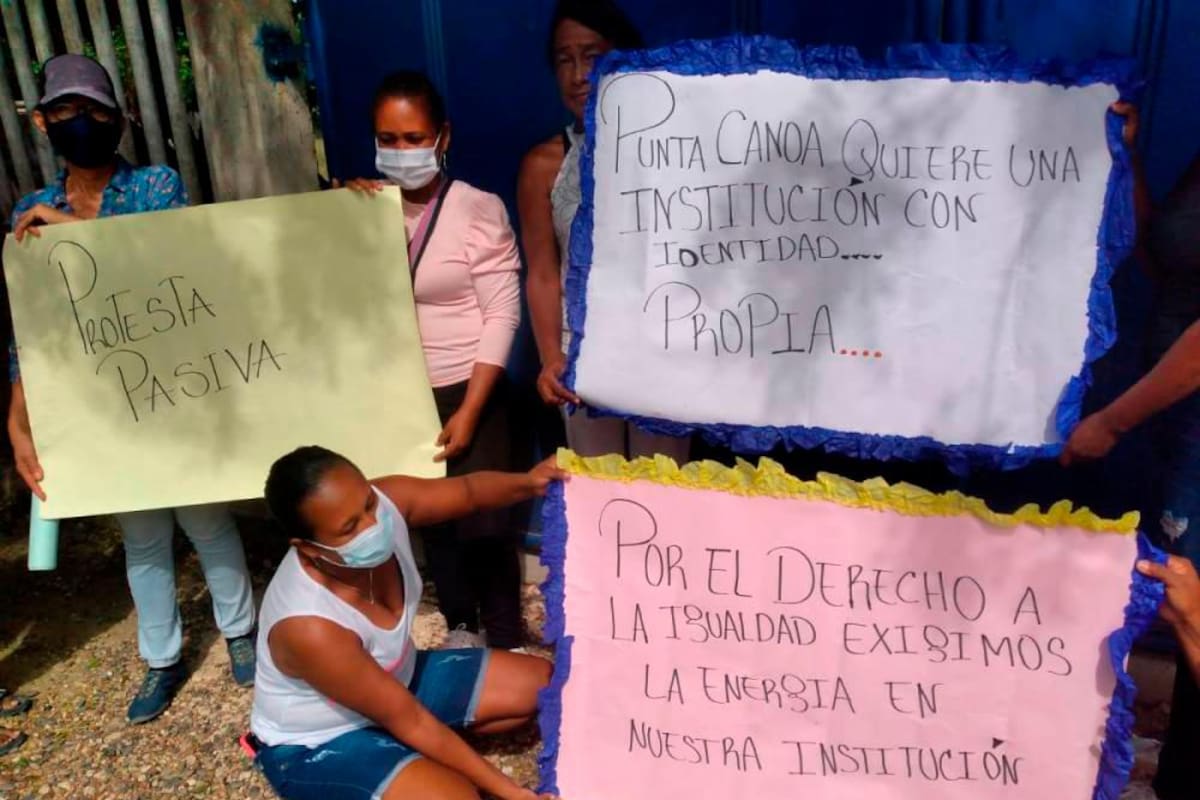 PROTESTA
PASIVA
PUNTA CANOA QUIERE UNA
INSTITUCIÓN CON
IDENTIDAD....
PROPIA....
POR EL DERECHO A
LA IGUALDAD EXIGIMOS
LA ENERGIA EN
NUESTRA INSTITUCIÓN